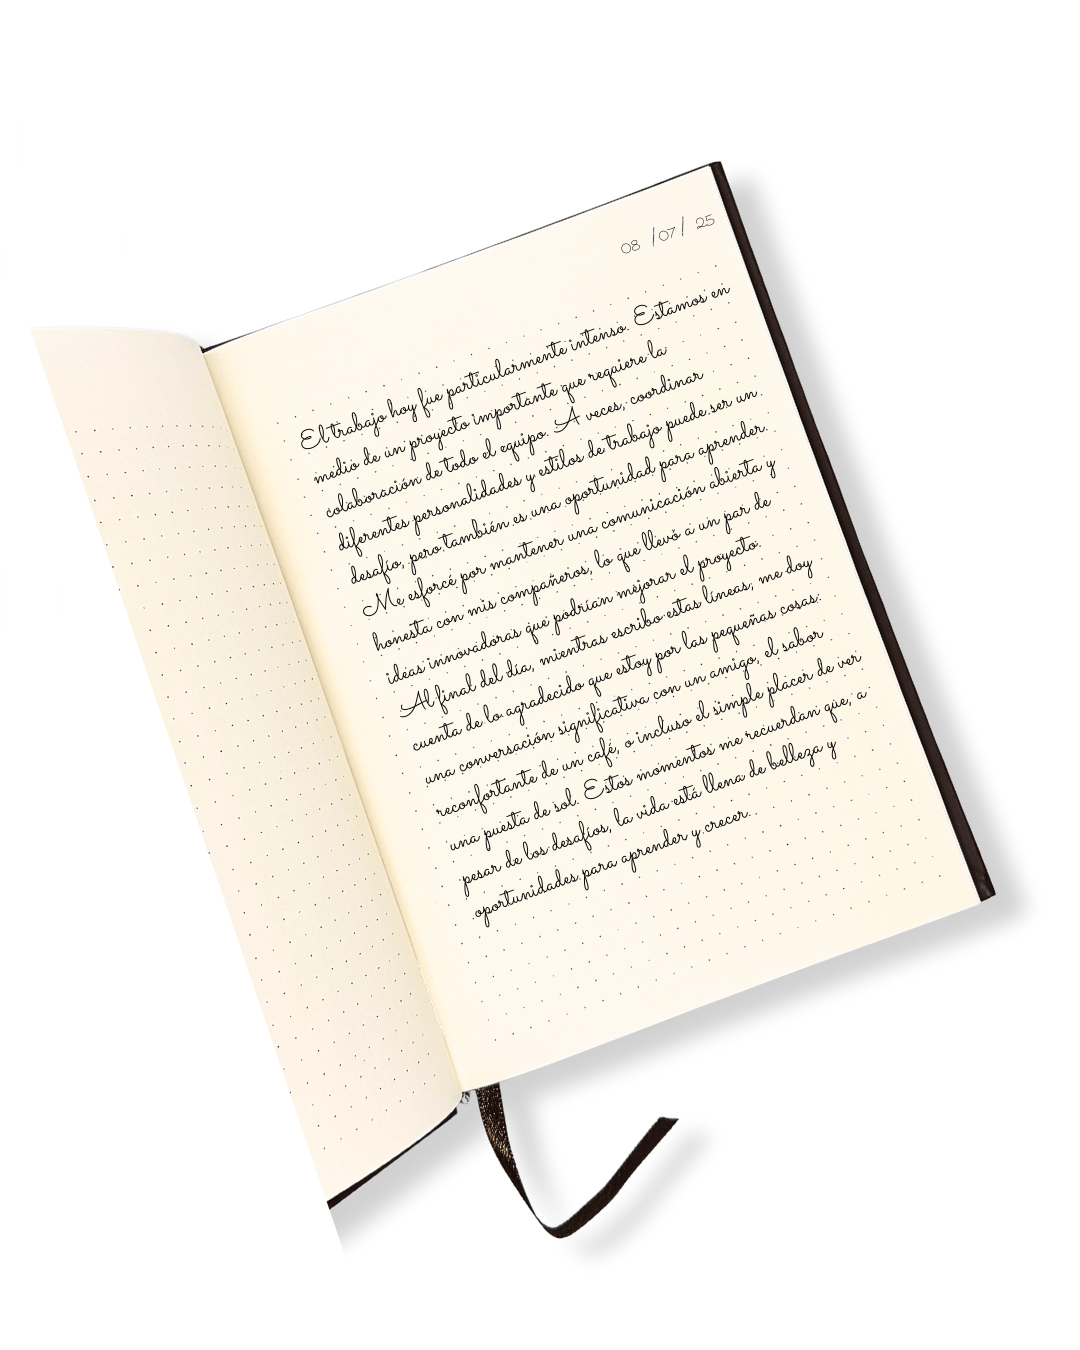 08 /07/ 25
El trabajo hoy fue particularmente intenso. Estamos en
medio de un proyecto importante que requiere la
colaboración de todo el equipo. A veces, coordinar
diferentes personalidades y estilos de trabajo puede ser un
desafío, pero también es una oportunidad para aprender.
Me esforcé por mantener una comunicación abierta y
honesta con mis compañeros, lo que llevó a un par de
ideas innovadoras que podrían mejorar el proyecto.
Al final del día, mientras escribo estas líneas, me doy
cuenta de lo agradecido que estoy por las pequeñas cosas:
una conversación significativa con un amigo, el sabor
reconfortante de un café, o incluso el simple placer de ver
una puesta de sol. Estos momentos me recuerdan que, a
pesar de los desafíos, la vida está llena de belleza y
oportunidades para aprender y crecer.